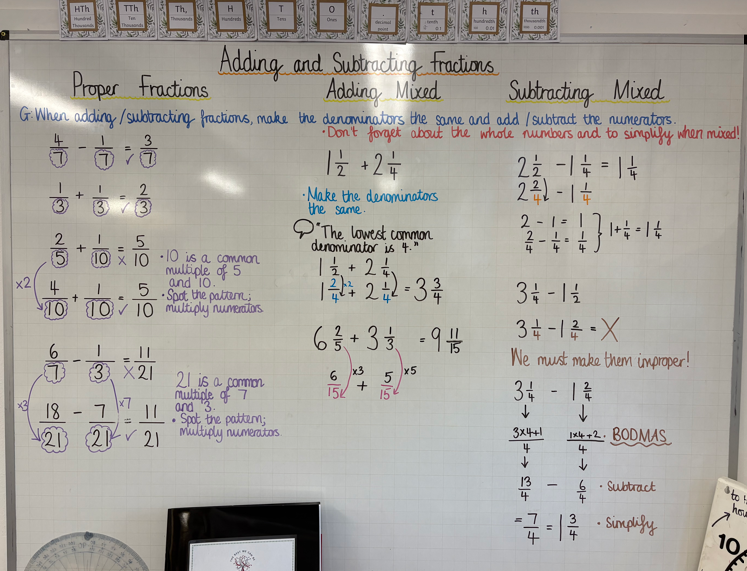 HTh TTh Th, H T O . t h th
Hundred Thousands Ten Thousands Thousands Hundreds Tens Ones decimal point tenths hundredths thousandths
Adding and Subtracting Fractions
Proper Fractions
G: When adding/subtracting fractions, make the denominators the same and add/subtract the numerators.
• Don't forget about the whole numbers and to simplify when mixed!
4/7 - 1/7 = 3/7 ✓
1/3 + 1/3 = 2/3 ✓
2/5 + 1/10 = 5/10 X
• 10 is a common
multiple of 5
and 10.
• Spot the pattern;
multiply numerators
x2
4/10 + 1/10 = 5/10 ✓
6/7 - 1/3 = 11/21 X
21 is a common
multiple of 7
and 3.
• Spot the pattern;
multiply numerators
x3 x7
18/21 - 7/21 = 11/21 ✓
Adding Mixed
1 1/2 + 2 1/4
• Make the denominators
the same.
"The lowest common
denominator is 4."
1 1/2 + 2 1/4
1 2/4 x2 + 2 1/4 = 3 3/4
6 2/5 + 3 1/3 = 9 11/15
x3 x5
6/15 + 5/15
Subtracting Mixed
2 1/2 - 1 1/4 = 1 1/4
2 2/4 - 1 1/4
2 - 1 = 1
2/4 - 1/4 = 1/4 } 1 + 1/4 = 1 1/4
3 1/4 - 1 1/2
3 1/4 - 1 2/4 = X
We must make them improper!
3 1/4 - 1 2/4
3x4+1/4 1x4+2/4 • BODMAS
13/4 - 6/4 • Subtract
= 7/4 = 1 3/4 • Simplify
10